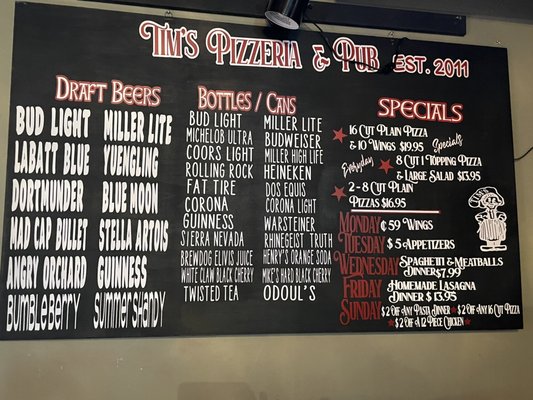 Tim's Pizzeria & Pub Est. 2011
Draft Beers
Bud Light
Labatt Blue
Dortmunder
Mad Cap Bullet
Angry Orchard
Bumbleberry
Miller Lite
Yuengling
Blue Moon
Stella Artois
Guinness
Summer Shandy
Bottles / Cans
Bud Light
Michelob Ultra
Coors Light
Rolling Rock
Fat Tire
Corona
Guinness
Sierra Nevada
Brewdog Elivis Juice
White Claw Black Cherry
Twisted Tea
Miller Lite
Budweiser
Miller High Life
Heineken
Dos Equis
Corona Light
Warsteiner
Rhinegeist Truth
Henry's Orange Soda
Mike's Hard Black Cherry
Odoul's
Specials
Everyday Specials
16 Cut Plain Pizza
& 10 Wings $19.95
8 Cut 1 Topping Pizza
& Large Salad $13.95
2 - 8 Cut Plain
Pizzas $16.95
Monday ¢59 Wings
Tuesday $5 Appetizers
Wednesday Spaghetti & Meatballs
Dinner $7.99
Friday Homemade Lasagna
Dinner $13.95
Sunday $2 Off Any Pasta Dinner $2 Off Any 16 Cut Pizza
$2 Off A 12 Piece Chicken